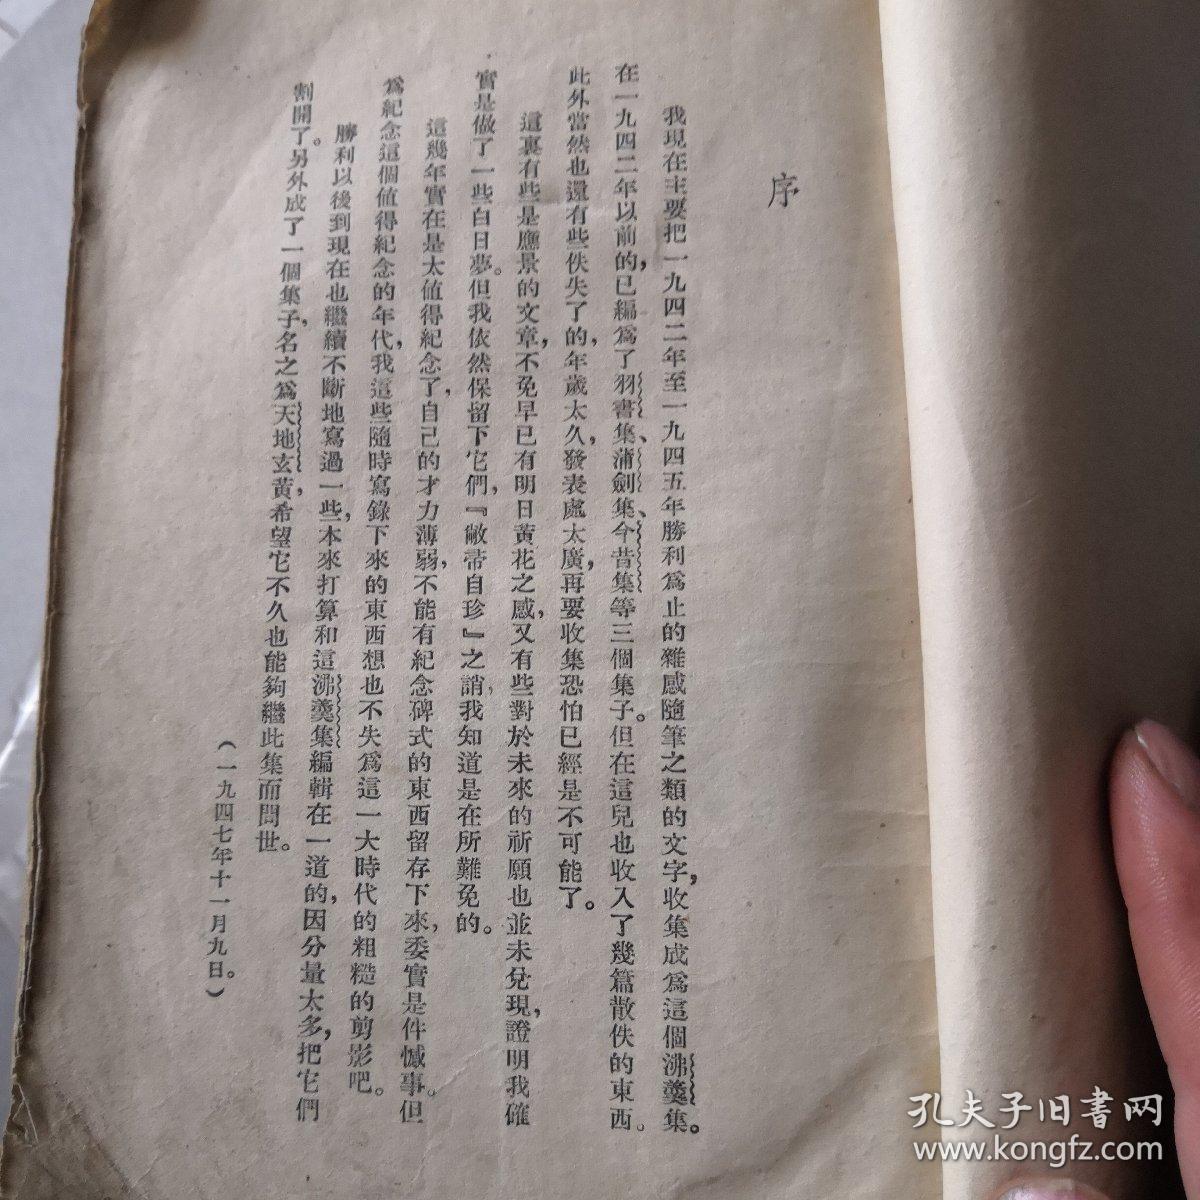 序
我現在主要把一九四二年至一九四五年勝利爲止的雜感隨筆之類的文字，收集成爲這個沸羹集。
在一九四二年以前的，已編爲了羽書集、蒲劍集、今昔集等三個集子。但在這兒也收入了幾篇散佚的東西。
此外當然也還有些佚失了的，年歲太久，發表處太廣，再要收集恐怕已經是不可能了。
這裏有些是應景的文章，不免早已有明日黃花之感，又有些對於未來的祈願也並未兌現，證明我確
實是做了一些白日夢。但我依然保留下它們，『敝帚自珍』之誚，我知道是在所難免的。
這幾年實在是太值得紀念了，自己的才力薄弱，不能有紀念碑式的東西留存下來，委實是件憾事。但
爲紀念這個值得紀念的年代，我這些隨時寫錄下來的東西想也不失爲這一大時代的粗糙的剪影吧。
勝利以後到現在也繼續不斷地寫過一些，本來打算和這沸羹集編輯在一道的，因分量太多，把它們
割開了。另外成了一個集子，名之爲天地玄黃，希望它不久也能夠繼此集而問世。
（一九四七年十一月九日。）
孔夫子旧書网
www.kongfz.com